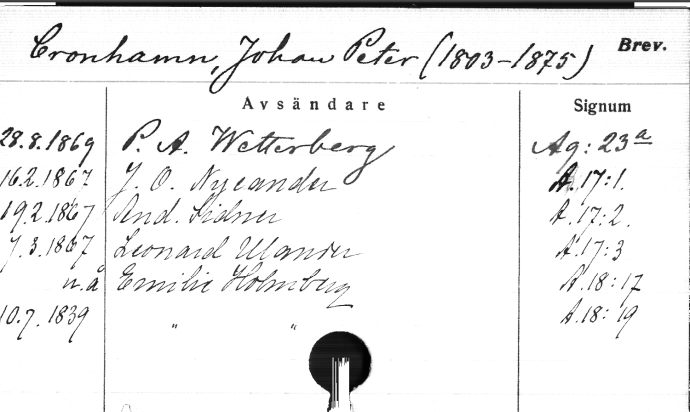 Cronhamn, Johan Peter (1803-1875) Brev.
Avsändare Signum
28.8.1869 P. A. Wetterberg Ag: 23a
16.2.1867 J. O. Nycander A. 17:1.
19.2.1867 And. Sidner A. 17:2.
7.3.1867 Leonard Ulander A. 17:3
u.å Emilie Holmberg A. 18:17
10.7.1839 " " A. 18:19